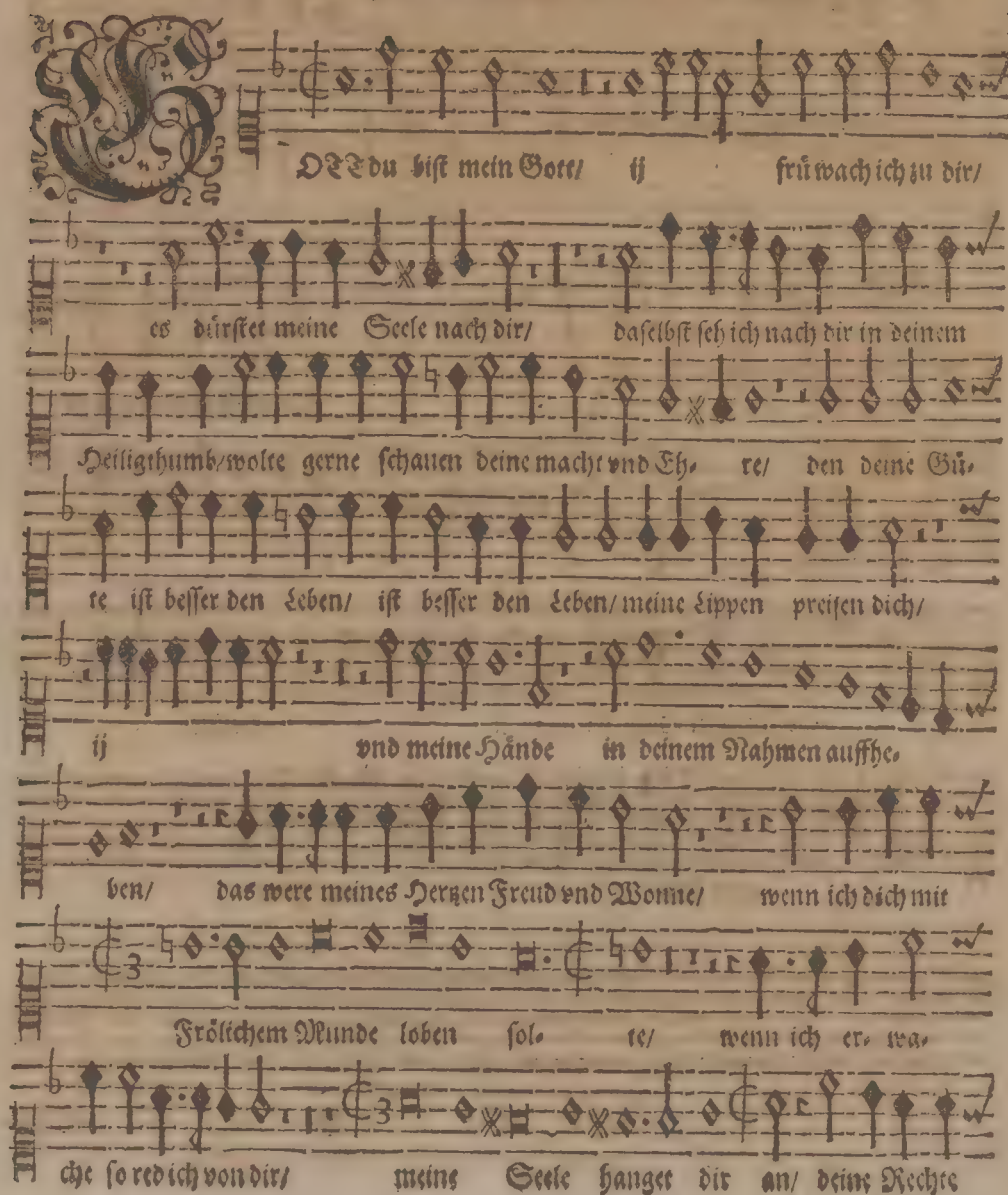 GOTT du bist mein Gott/ ij frü wach ich zu dir/
es dürstet meine Seele nach dir/ daselbst seh ich nach dir in deinem
Heiligthumb/ wolte gerne schauen deine macht vnd Eh- re/ den deine Gü-
te ist besser den Leben/ ist besser den Leben/ meine Lippen preisen dich/
ij vnd meine Hände in deinem Nahmen auffhe-
ben/ das were meines Hertzen Freud vnd Wonne/ wenn ich dich mit
Frölichem Munde loben sol- te/ wenn ich er- wa-
che so red ich von dir/ meine Seele hanget dir an/ deine Rechte